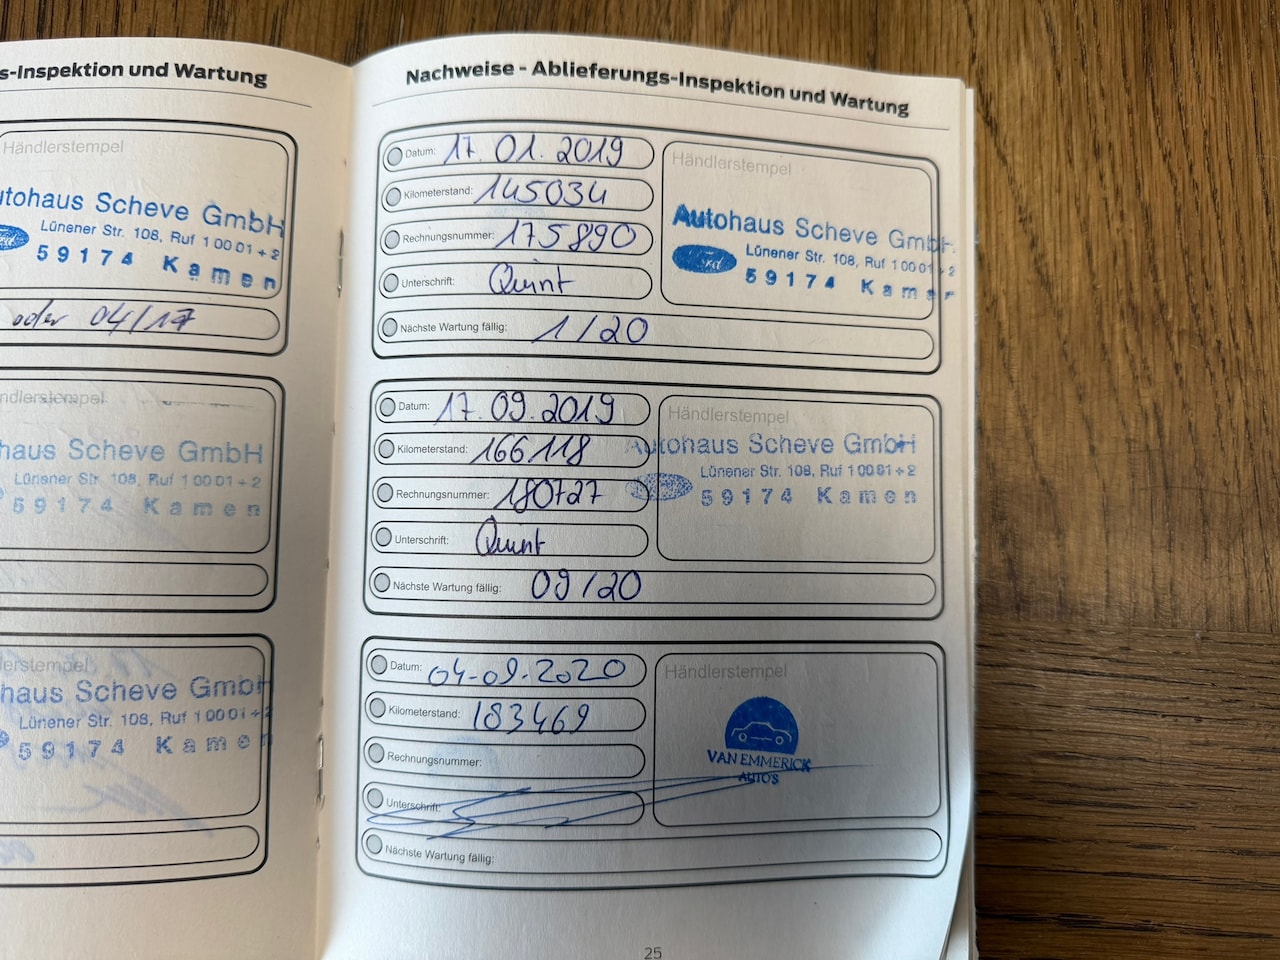 s-Inspektion und Wartung
Händlerstempel
utohaus Scheve GmbH
Lünener Str. 108, Ruf 1 00 01 ÷ 2
59174 Kamen
oder 04/17
ndlerstempel
haus Scheve GmbH
Lünener Str. 108, Ruf 1 00 01 ÷ 2
59174 Kamen
lerstempel
haus Scheve GmbH
Lünener Str. 108, Ruf 1 00 01 ÷ 2
59174 Kamen
Nachweise - Ablieferungs-Inspektion und Wartung
Datum: 17.01.2019
Kilometerstand: 145034
Rechnungsnummer: 175890
Unterschrift: Quint
Nächste Wartung fällig: 1/20
Händlerstempel
Autohaus Scheve GmbH
Ford
Lünener Str. 108, Ruf 1 00 01 ÷ 2
59174 Kamen
Datum: 17.09.2019
Kilometerstand: 166118
Rechnungsnummer: 180727
Unterschrift: Quint
Nächste Wartung fällig: 09/20
Händlerstempel
Autohaus Scheve GmbH
Lünener Str. 108, Ruf 1 00 01 ÷ 2
59174 Kamen
Datum: 04-09-2020
Kilometerstand: 183469
Rechnungsnummer:
Unterschrift:
Nächste Wartung fällig:
Händlerstempel
VAN EMMERICK
AUTO'S
25